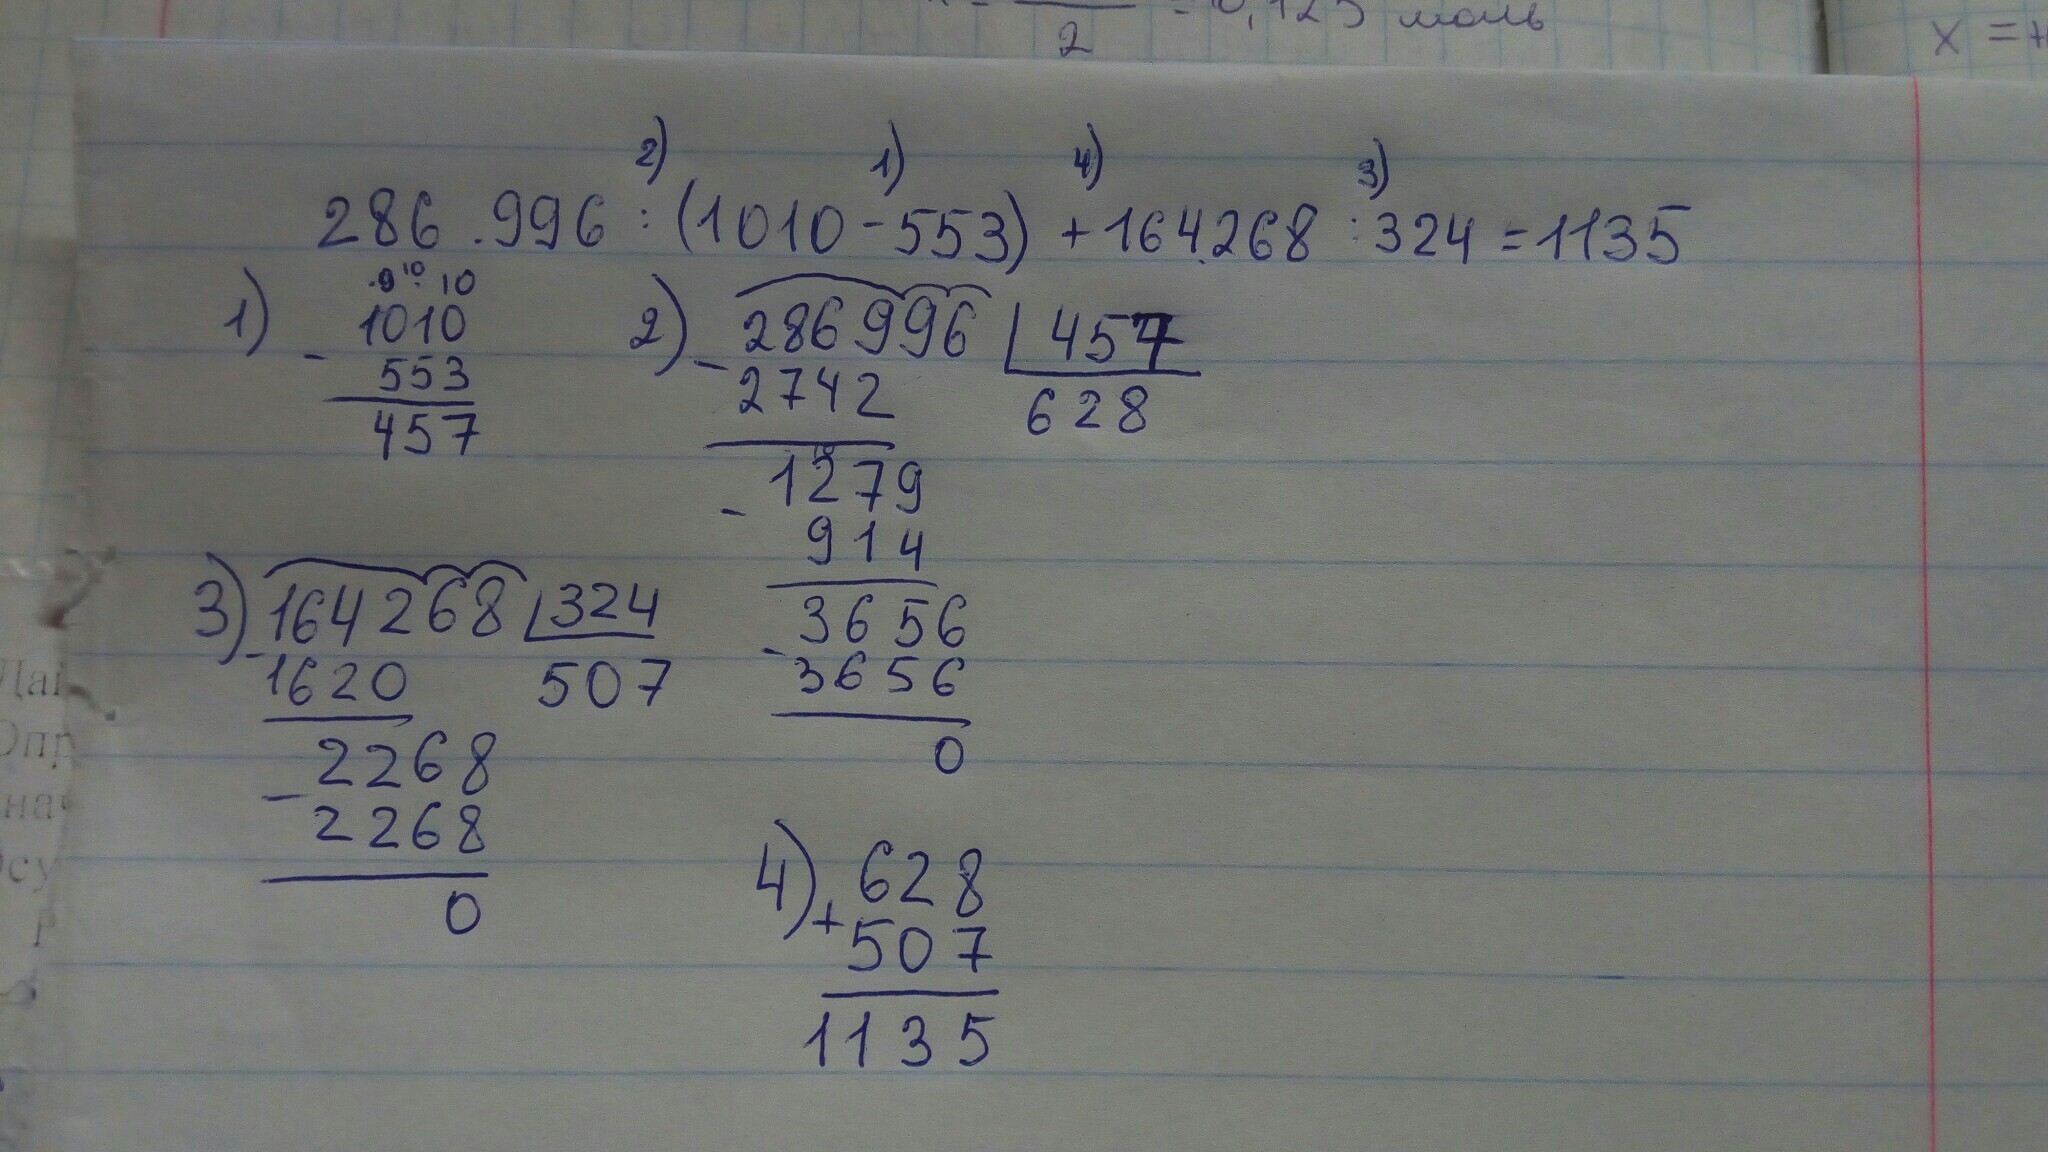 2 = 0,125 моль
x =
2) 1) 4) 3)
286.996 : (1010 - 553) + 164.268 : 324 = 1135
1) 2)
.9 10 . 10
1010
- 553
457
286996 | 457
- 2742 628
1279
- 914
3656
- 3656
0
3) 164268 | 324
- 1620 507
2268
- 2268
0
4) 628
+ 507
1135